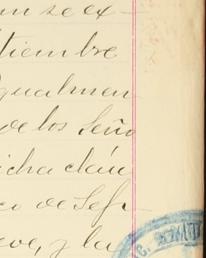 un se ex-
tiembre
gualmen
de los Seño
icha cláu
co de Sep-
eve, y la